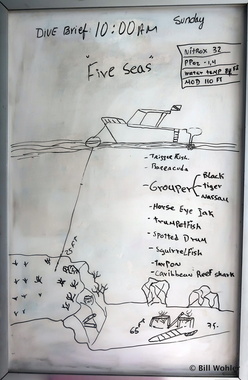 DIVE Brief 10:00AM Sunday
NITROX 32
PPO2 -1.4
water temp 82
MOD 110 FT
"Five Seas"
- Trigger Fish
- Barracuda
- Grouper
Black
tiger
Nassau
- Horse Eye Jak
- TrumpetFish
- Spotted Drum
- SquirrelFish
- Tarpon
- Caribbean Reef shark
65 FT
75-
© Bill Wohler